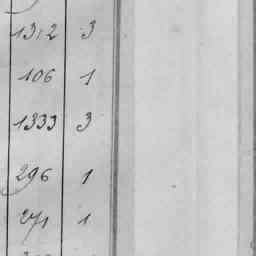 1312 3
106 1
1333 3
296 1
271 1